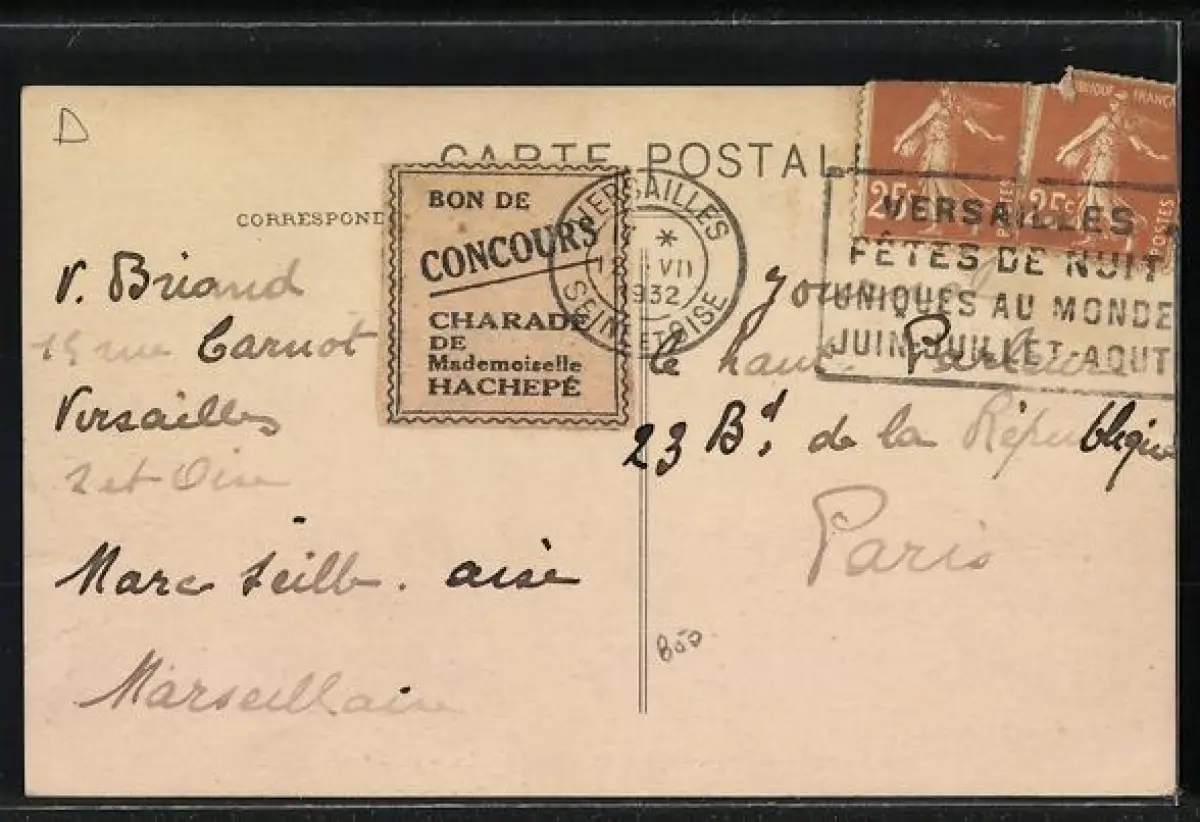 D
CARTE POSTAL
CORRESPOND
V. Briand
15 rue Carnot
Versailles
S et Oise
Marc seille . aise
Marseillaise
BON DE
CONCOURS
CHARADE
DE
Mademoiselle
HACHEPÉ
VERSAILLES
* VII
1932
SEINE ET OISE
25c
POSTES
RÉPUBLIQUE FRANÇA
25c
POSTES
VERSAILLES
FÊTES DE NUIT
UNIQUES AU MONDE
JUIN-JUILLET-AOUT
Journal
le haut Parleur
23 Bd. de la République
Paris